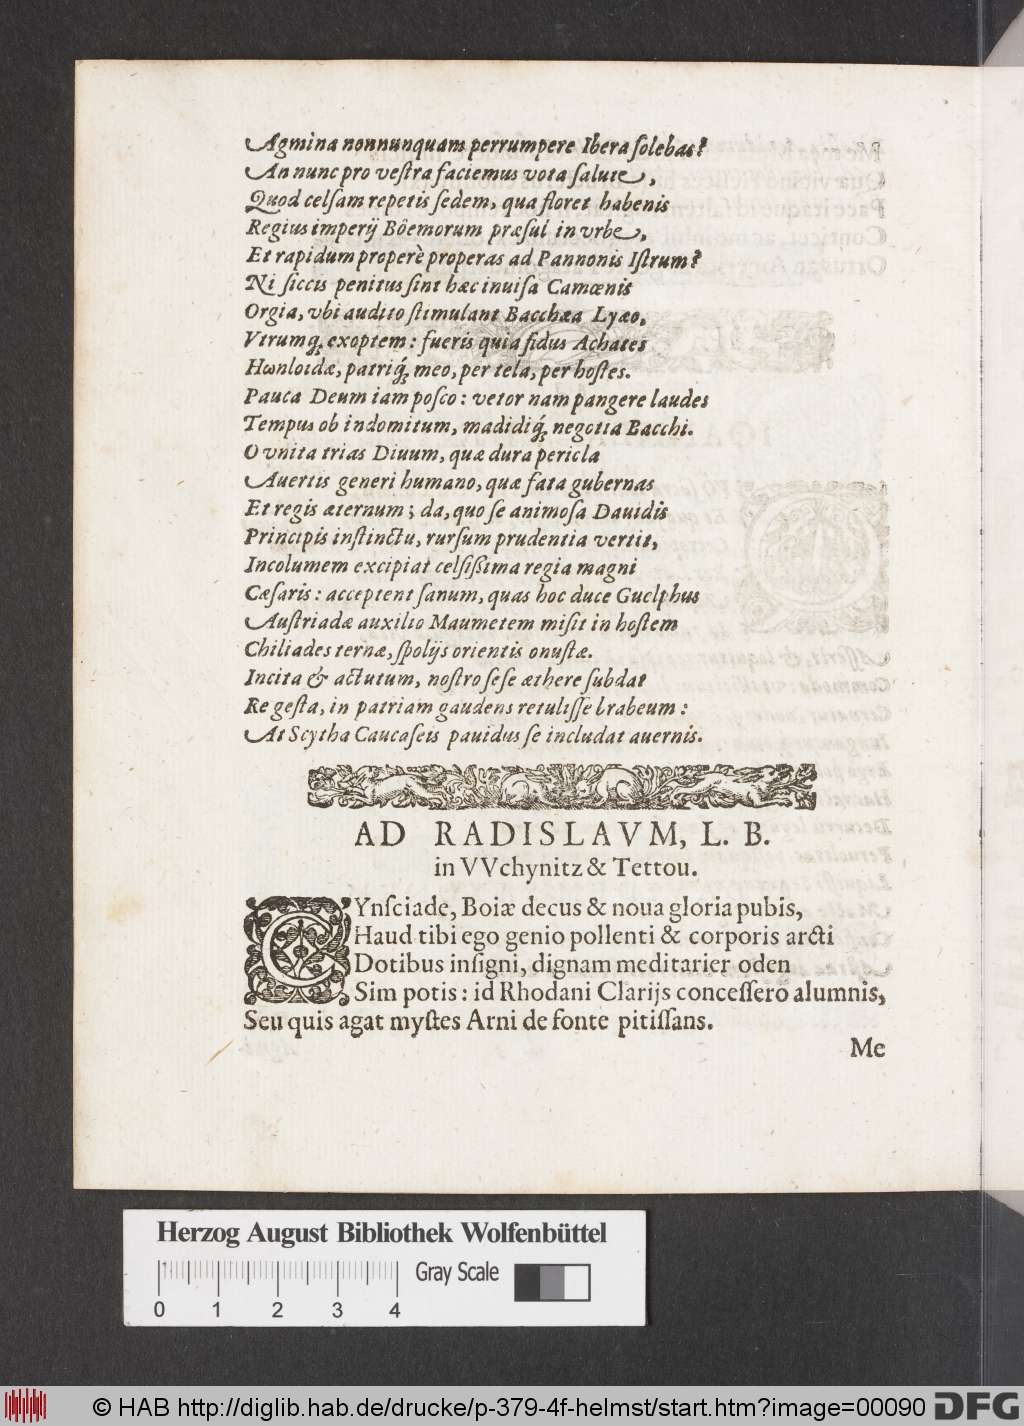 Agmina nonnunquam perrumpere Ibera ſolebas?
An nunc pro veſtra faciemus vota ſalute,
Quod celſam repetis ſedem, qua floret habenis
Regius imperij Bôemorum præſul in vrbe,
Et rapidum properè properas ad Pannonis Iſtrum?
Ni ſiccis penitus ſint hæc inuiſa Camœnis
Orgia, vbi audito ſtimulant Bacchæa Lyæo,
Vtrumq́; exoptem: fueris quia fidus Achates
Hωnloidæ, patriq́; meo, per tela, per hoſtes.
Pauca Deum iam poſco: vetor nam pangere laudes
Tempus ob indomitum, madidiq́; negotia Bacchi.
O vnita trias Diuum, quæ dura pericla
Auertis generi humano, quæ fata gubernas
Et regis æternum; da, quo ſe animoſa Dauidis
Principis inſtinctu, rurſum prudentia vertit,
Incolumem excipiat celſiſſima regia magni
Cæſaris: acceptent ſanum, quas hoc duce Guelphus
Auſtriadæ auxilio Maumetem miſit in hoſtem
Chiliades ternæ, ſpolijs orientis onuſtæ.
Incita & actutum, noſtro ſeſe æthere ſubdat
Re geſta, in patriam gaudens retuliſſe brabeum:
At Scytha Caucaſeis pauidus ſe includat auernis.
AD RADISLAVM, L. B.
in VVchynitz & Tettou.
CYnſciade, Boiæ decus & noua gloria pubis,
Haud tibi ego genio pollenti & corporis arcti
Dotibus inſigni, dignam meditarier oden
Sim potis: id Rhodani Clarijs conceſſero alumnis,
Seu quis agat myſtes Arni de fonte pitiſſans.
Me
Herzog August Bibliothek Wolfenbüttel
Gray Scale
0 1 2 3 4
© HAB http://diglib.hab.de/drucke/p-379-4f-helmst/start.htm?image=00090
DFG